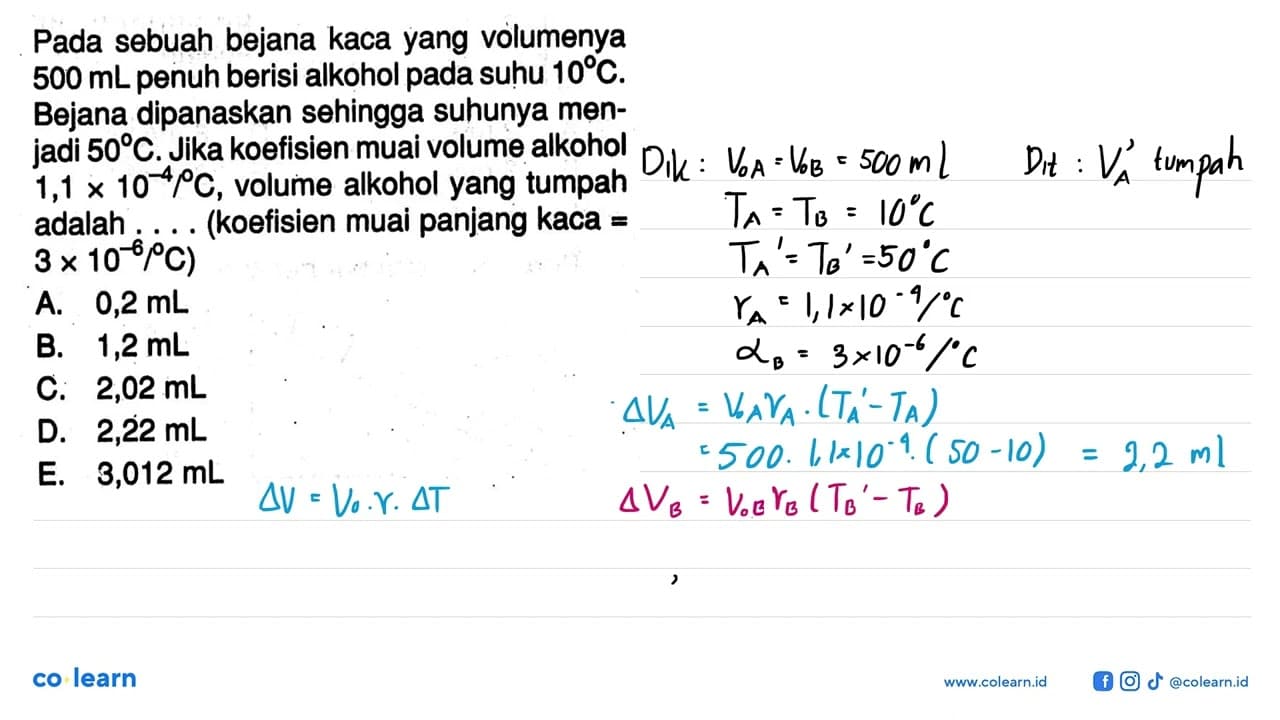 Pada sebuah bejana kaca yang volumenya
500 mL penuh berisi alkohol pada suhu 10°C.
Bejana dipanaskan sehingga suhunya men-
jadi 50°C. Jika koefisien muai volume alkohol
1,1 × 10⁻⁴/°C, volume alkohol yang tumpah
adalah . . . . (koefisien muai panjang kaca =
3 × 10⁻⁶/°C)
A. 0,2 mL
B. 1,2 mL
C. 2,02 mL
D. 2,22 mL
E. 3,012 mL
Dik : V₀A = V₀B = 500 ml
TA = TB = 10°C
TA' = TB' = 50°C
γA = 1,1 × 10⁻⁴/°C
αB = 3 × 10⁻⁶/°C
Dit : VA' tumpah
ΔV = V₀ . γ . ΔT
ΔVA = V₀A γA . (TA' - TA)
= 500 . 1,1 × 10⁻⁴ . (50 - 10) = 2,2 ml
ΔVB = V₀B γB (TB' - TB)
,
co learn
www.colearn.id
@colearn.id